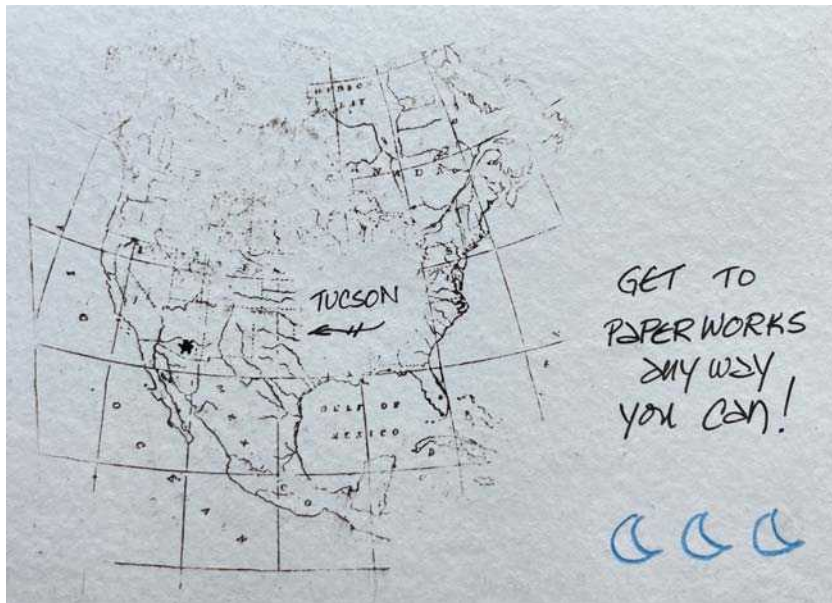 HUDSO
BAY
CANADA
TUCSON
GULF OF
MEXICO
GET TO
PAPERWORKS
any way
you can!